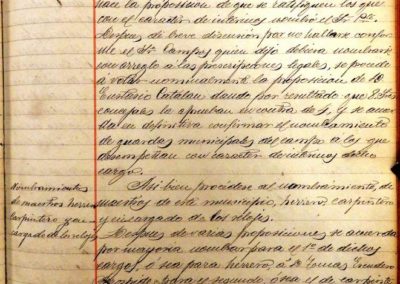 hace la proposicion de que se ratifiquen los que
con el caracter de interinos nombró el Sr. Pte.
Despues de breve discusion por no hallarse confor-
me el Sr. Campos quien dijo debian nombrarse
con arreglo a las prescripciones legales, se procede
á votar nominalmente la proposicion de D.
Eusterio Catalan dando por resultado que 8 Sres
concejales la aprueban en contra de y se acor-
en definitiva confirmar el nombramiento
de guardas municipales del campo a los que
desempeñan con caracter de interinos dicho
cargo.
Nombramientos
de maestros herrero
carpintero y en-
cargado de los relojes
Asi bien procedese al nombramiento de
maestros de este municipio, herrero, carpintero
y encargado de los relojes.
Despues de varias proposiciones se acuerda
por mayoria nombrar para el 1º de dichos
cargos, ó sea para herrero, á D. Tomas Escudero
para el segundo, ó sea el de carpinte